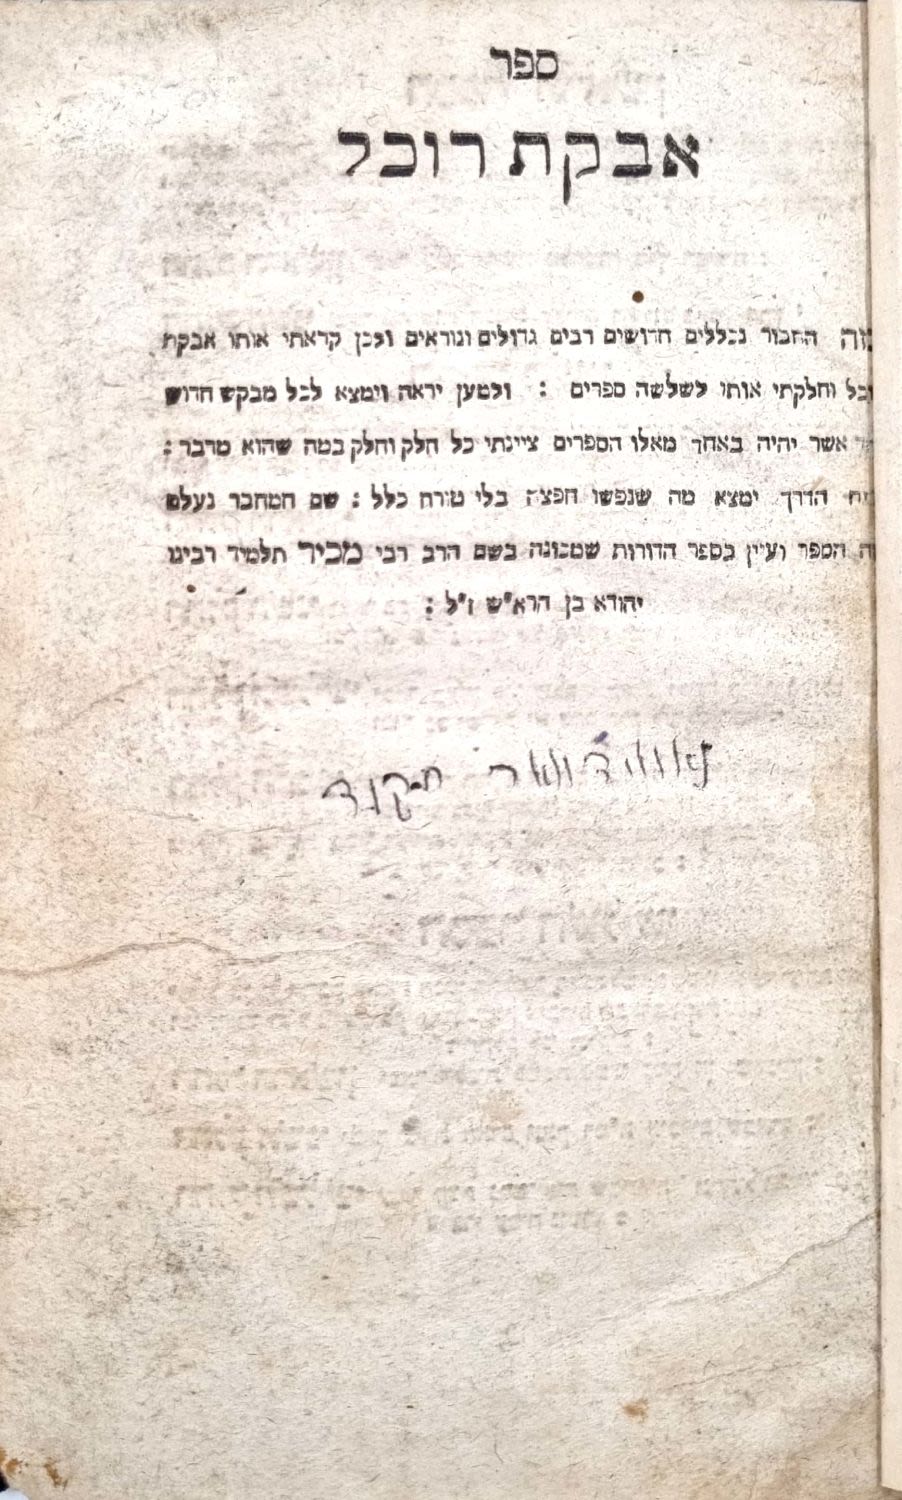 ספר
אבקת רוכל
החבור נכללים חדושים רבים גדולים ונוראים ולכן קראתי אותו אבקת
וחלקתי אותו לשלשה ספרים : ולמען יראה וימצא לכל מבקש חדוש
אשר יהיה באחד מאלו הספרים ציינתי כל חלק וחלק במה שהוא מדבר :
הדרך ימצא מה שנפשו חפצה בלי טורח כלל : שם המחבר נעלם
הספר ועיין בספר הדורות שמכונה בשם הרב רבי מכיר תלמיד רבינו
יהודא בן הרא"ש ז"ל :